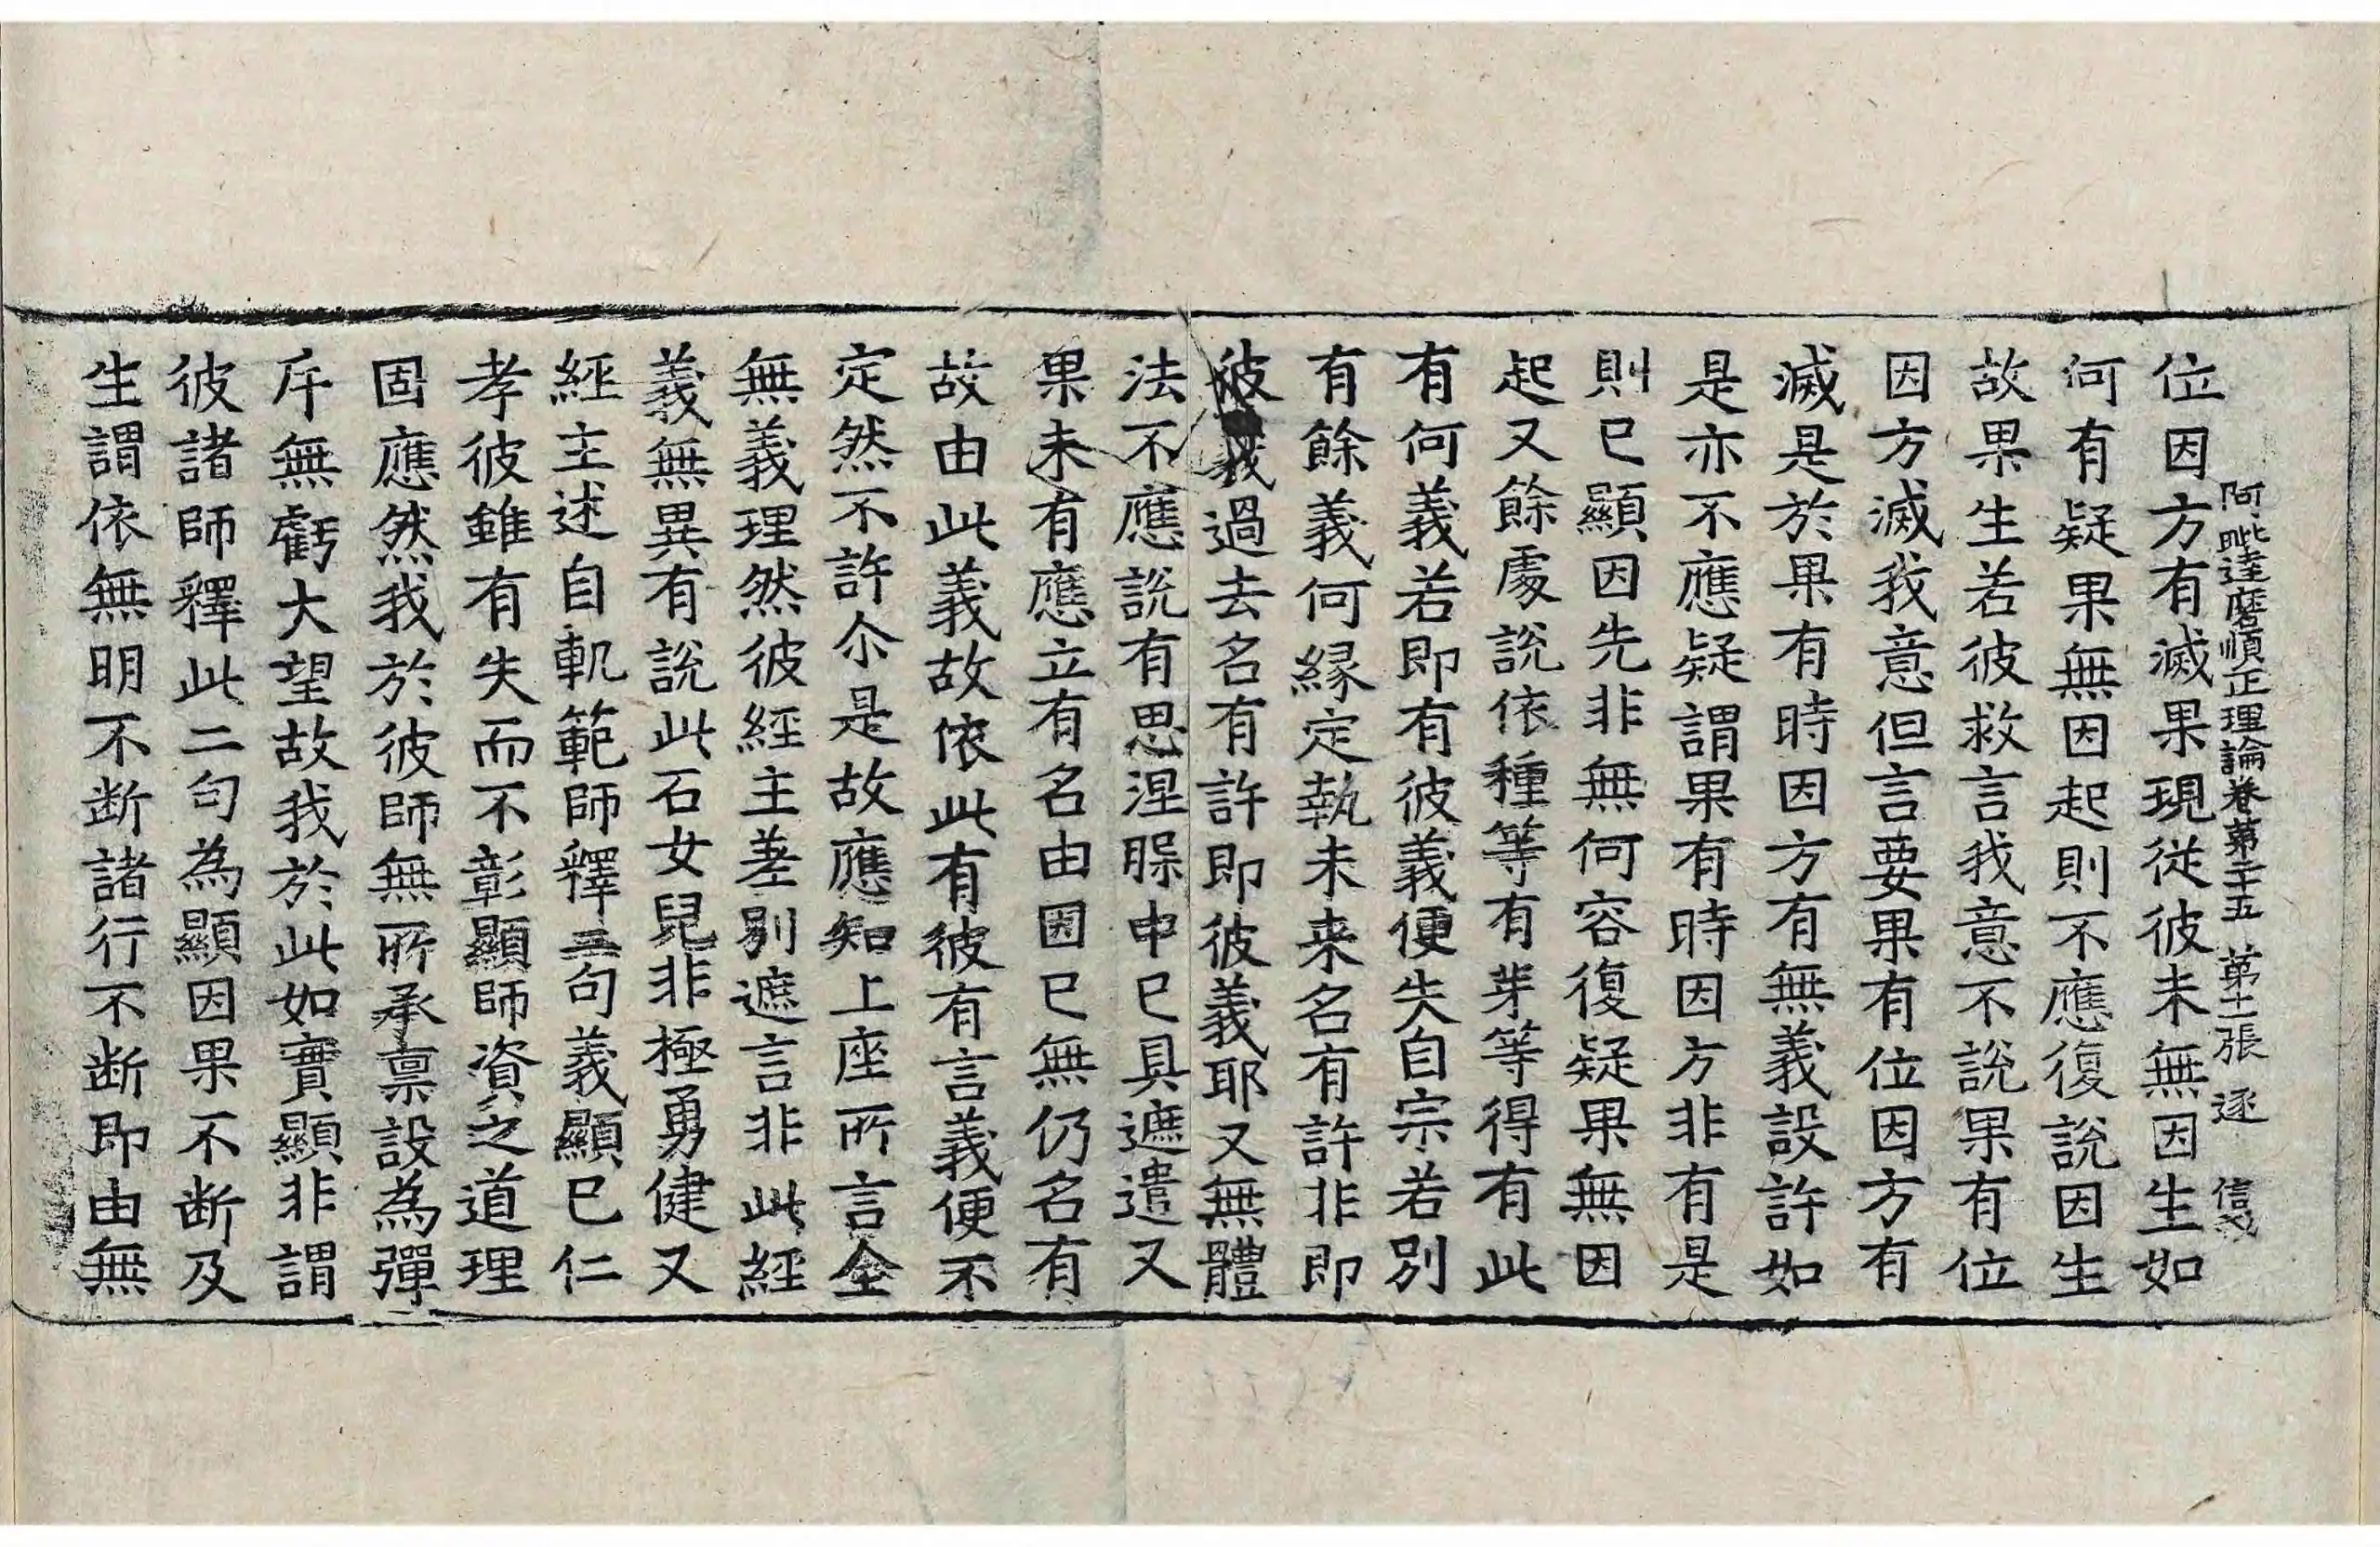 阿毗達磨順正理論卷第二十五 第十二張 逐
位因方有滅果現從彼未無因生如
何有疑果無因起則不應復說因生
故果生若彼救言我意不說果有位
因方滅我意但言要果有位因方有
滅是於果有時因方有無義設許如
是亦不應疑謂果有時因方非有是
則已顯因先非無何容復疑果無因
起又餘處說依種等有芽等得有此
有何義若即有彼義便失自宗若別
有餘義何緣定執未来名有許非即
彼義過去名有許即彼義耶又無體
法不應說有思涅槃中已具遮遣又
果未有應立有名由因已無仍名有
故由此義故依此有彼有言義便不
定然不許尒是故應知上座所言全
無義理然彼經主差別遮言非此經
義無異有說此石女兒非極勇健又
經主述自軌範師釋二句義顯已仁
孝彼雖有失而不彰顯師資之道理
固應然我於彼師無所承禀設為彈
斥無虧大望故我於此如實顯非謂
彼諸師釋此二句為顯因果不断及
生謂依無明不断諸行不断即由無